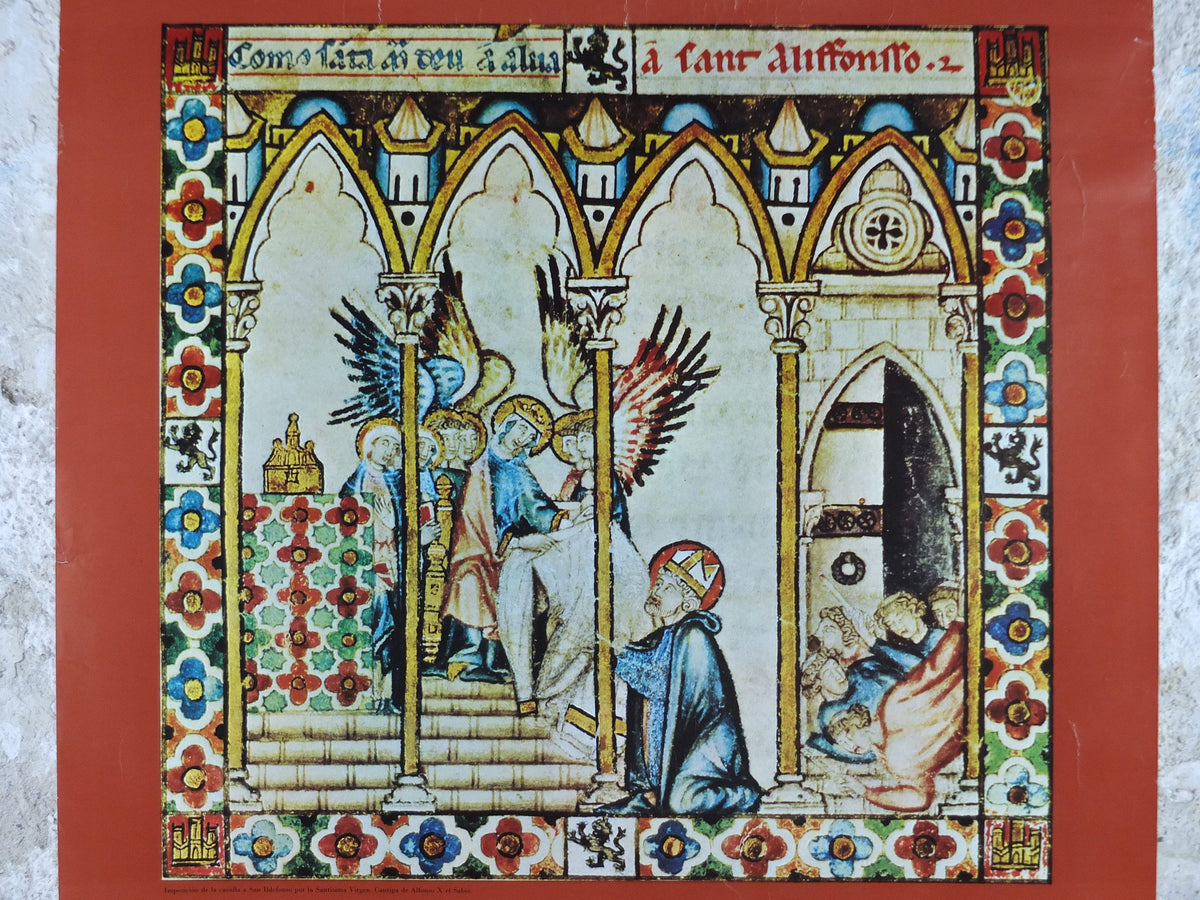 Como sc̃ta mȃ deu ȃ alua ȃ sant aliffonsso · 2
Imposición de la casulla a San Ildefonso por la Santísima Virgen. Cantiga de Alfonso X el Sabio.